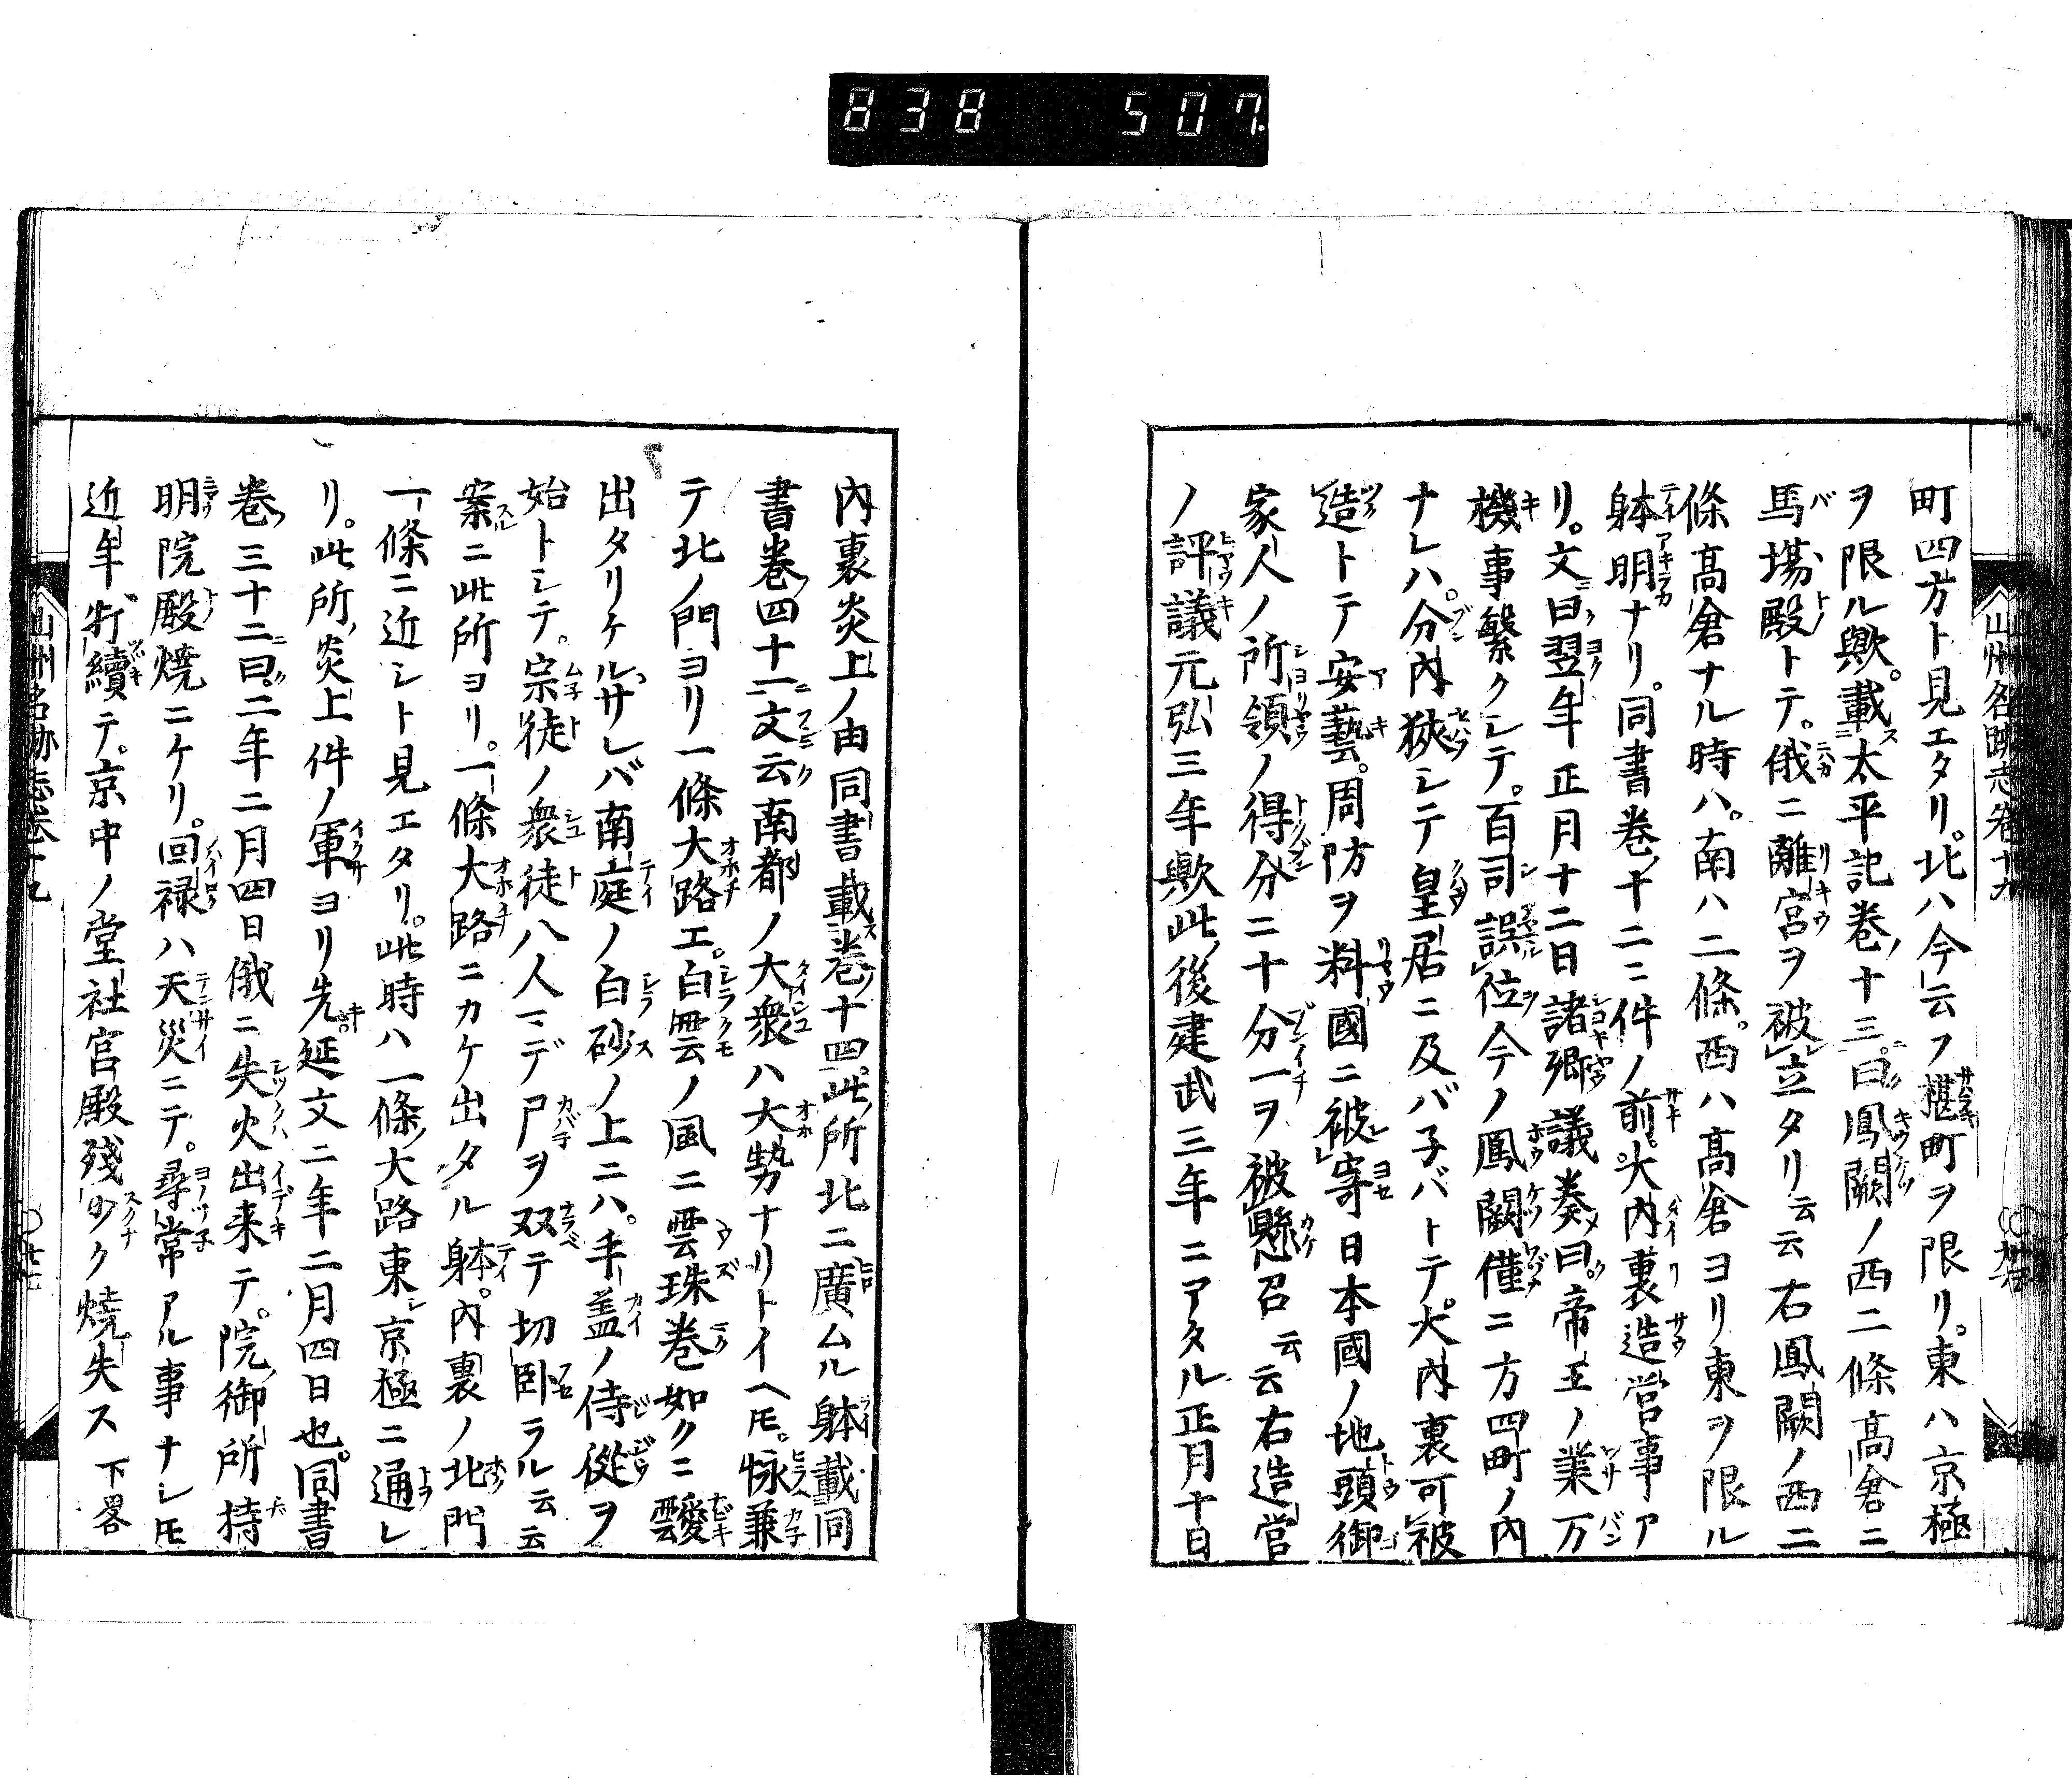 838 507.
山州名跡志卷十九
町四方ト見エタリ。北ハ今云フ椹町ヲ限リ。東ハ京極
ヲ限ル歟。載太平記卷十三。曰鳳闕ノ西二條高倉ニ
馬塲殿トテ。俄ニ離宮ヲ被立タリ云云右鳳闕ノ西二
條高倉ナル時ハ。南ハ二條。西ハ高倉ヨリ東ヲ限ル
躰明ナリ。同書卷十二ニ件ノ前。大內裏造営事ア
リ。文曰翌年正月十二日諸卿議奏曰。帝王ノ業万
機事繁クシテ。百司設位今ノ鳳闕僅ニ方四町ノ內
ナレハ。分內狹シテ皇居ニ及バ子バトテ大內裏可被
造トテ安藝。周防ヲ料國ニ被寄日本國ノ地頭御
家人ノ所領ノ得分二十分一ヲ被懸召云云右造営
ノ評議元弘三年歟此後建武三年ニアタル正月十日
內裏炎上ノ由同書載卷十四。此所北ニ廣ムル躰載同
書卷四十二文云南都ノ大衆ハ大勢ナリトイヘ𪜈。怺兼
テ北ノ門ヨリ一條大路エ。白雲ノ風ニ雲珠卷如クニ靉
出タリケル。サレバ南庭ノ白砂ノ上ニハ。手盖ノ侍從ヲ
始トシテ。宗徒ノ衆徒八人マデ尸ヲ双テ切卧ラル云云
案ニ此所ヨリ。一條大路ニカケ出タル躰。內裏ノ北門
一條ニ近シト見エタリ。此時ハ一條大路東京極ニ通レ
リ。此所炎上件ノ軍ヨリ先。延文二年二月四日也。同書
卷三十二曰。二年二月四日俄ニ失火出来テ。院御所持
明院殿燒ニケリ。回禄ハ天災ニテ。尋常アル事ナレ𪜈
近年打續テ。京中ノ堂社官殿殘少ク燒失ス下畧
山州名跡志卷十九